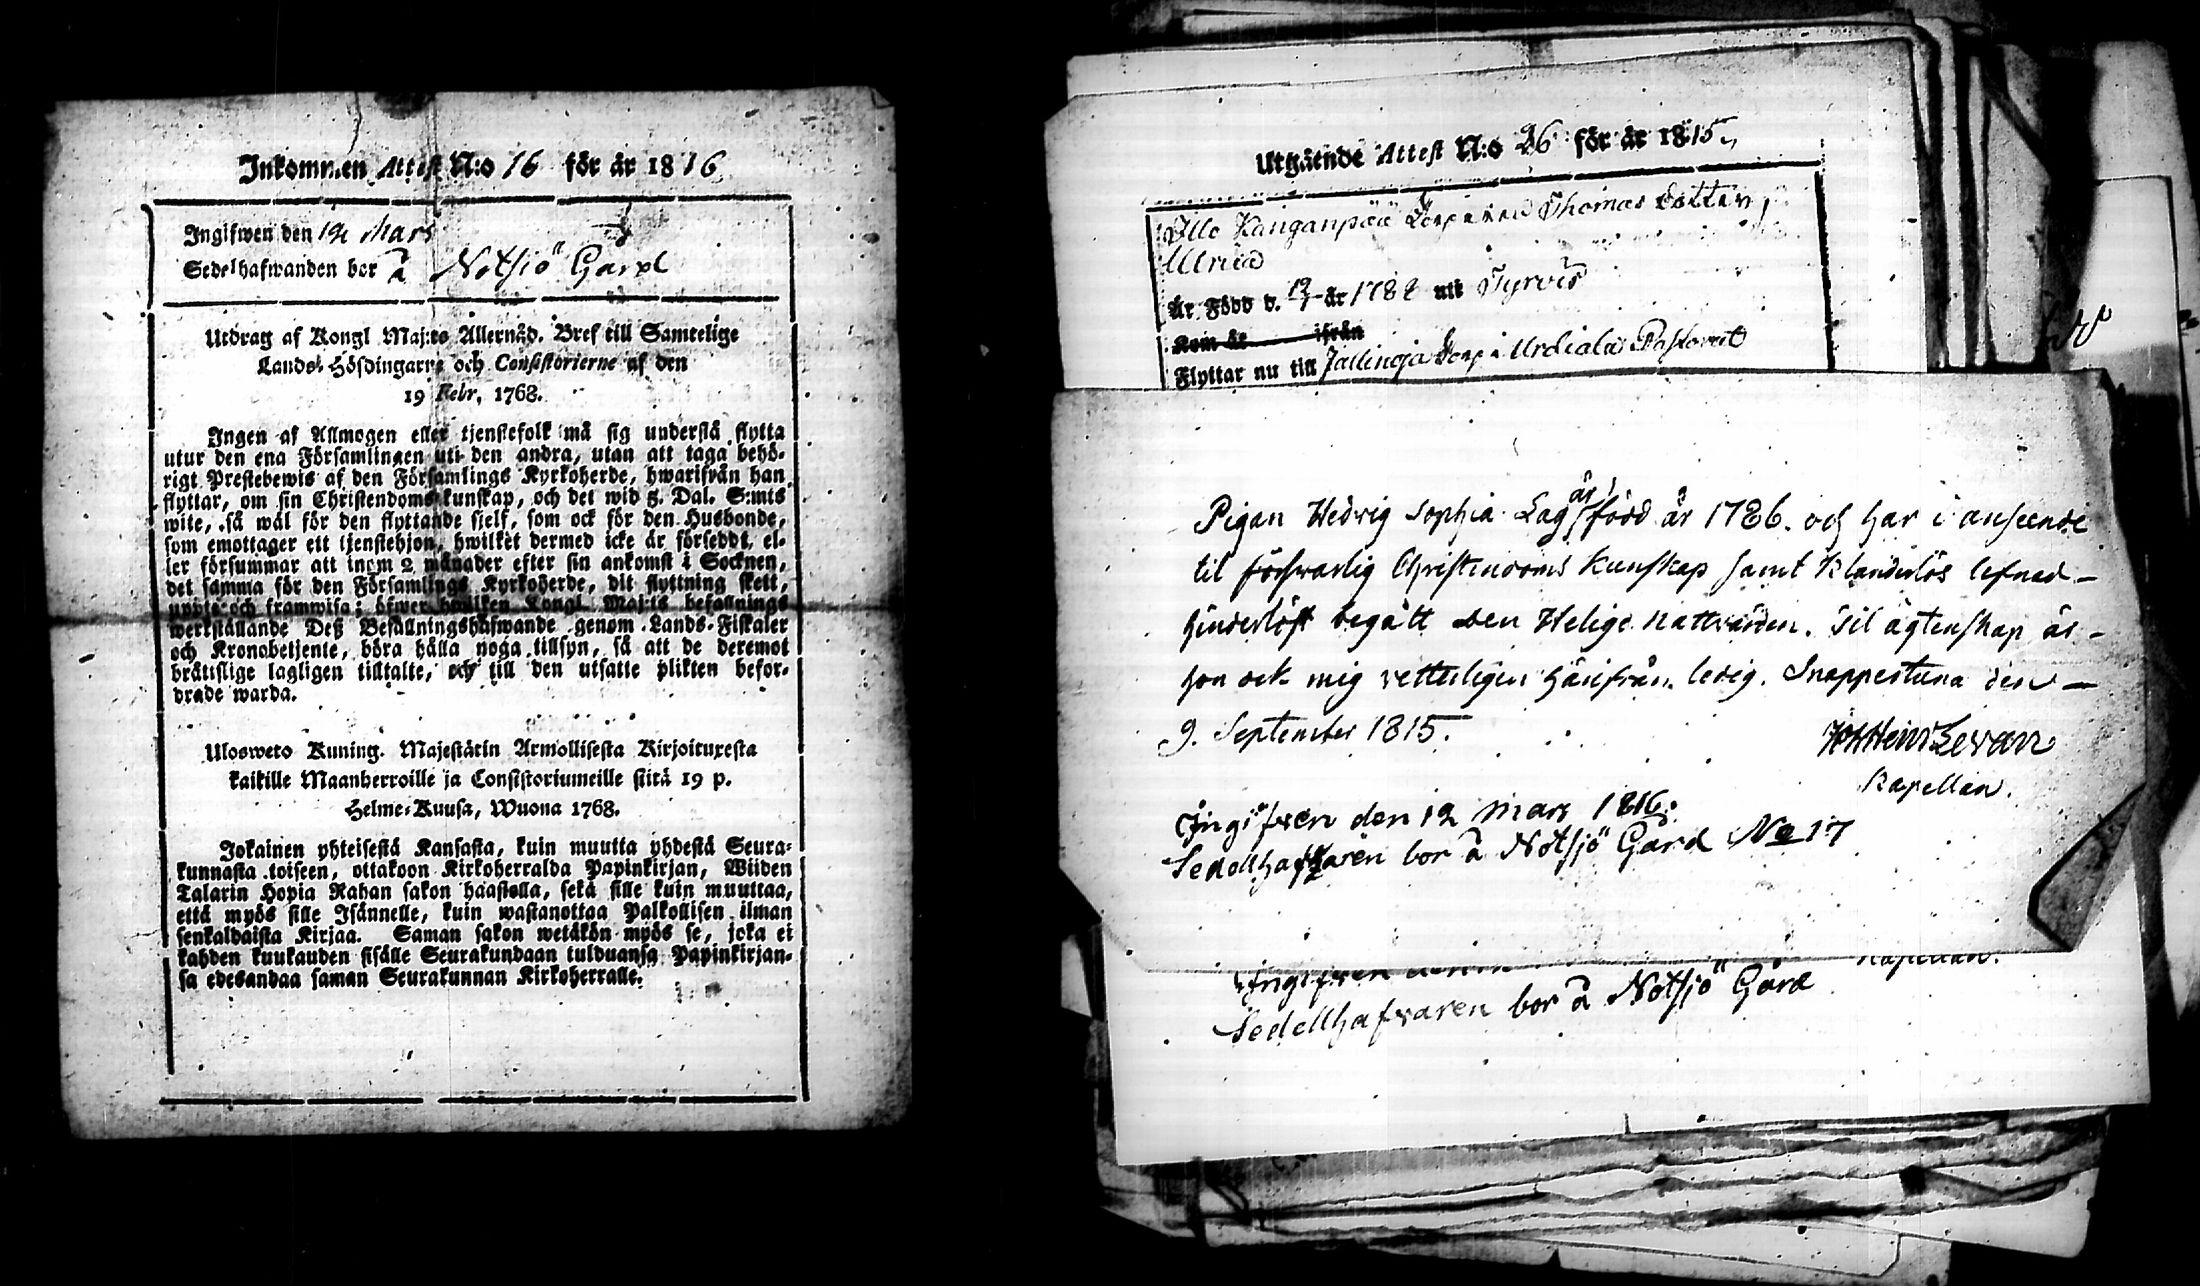 Inkommen Attest N:o 16 för år 1816
Ingifwen den 12 Mars
Sedelhafwanden bor å Notsjö Gård
Utdrag af Kongl Maj:ts Allernåd. Bref till Samtelige
Lands-Höfdingarne och Consistorierne af den
19 Febr, 1768.
Ingen af Allmogen eller tjenstefolk må sig understå flytta
utur den ena Församlingen uti den andra, utan att taga behö-
rigt Prestebewis af den Församlings Kyrkoherde, hwarifrån han
flyttar, om sin Christendoms kunskap, och det wid 5. Dal. S:mts
wite, så wäl för den flyttande sielf, som ock för den Husbonde,
som emottager ett tjenstehjon, hwilket dermed icke är försedt, el-
ler försummar att inom 2 månader efter sin ankomst i Socknen,
det samma för den Församlings Kyrkoherde, dit flyttning skett,
uppte och framwisa; öfwer hwilken Kongl Maj:ts befallnings
werkställande Deß Befallningshafwande genom Lands-Fiskaler
och Kronobetjente, böra hålla noga tillsyn, så att de deremot
bråttslige lagligen tilltalte, och till den utsatte plikten befor-
drade warda.
Ulosweto Kuning. Majestätin Armollisesta Kirjoituxesta
kaikille Maanherroille ja Consistoriumeille siitä 19 p.
Helme-Kuusa, Wuona 1768.
Jokainen yhteisestä Kansasta, kuin muutta yhdestä Seura-
kunnasta toiseen, ottakoon Kirkoherralda Papinkirjan, Wiiden
Talarin Hopia Rahan sakon haastolla, sekä sille kuin muuttaa,
että myös sille Isännelle, kuin wastanottaa Palkollisen ilman
senkaldaista Kirjaa. Saman sakon wetäkön myös se, joka ei
kahden kuukauden sisälle Seurakundaan tulduansa Papinkirjan-
sa edesandaa saman Seurakunnan Kirkoherralle.
Utgående Attest N:o 26 för år 1815
Illo Kanganpää Thomas dotter
Ulrica
Är Född d. 12 år 1788 uti Tyrvis
Kom år ifrån
Flyttar nu till Urdiala Pastorat
Pigan Hedvig Sophia Lag är född år 1786. och har i anseende
til försvarlig Christendoms Kunskap samt Klanderlös lefnad
hinderlöst begått den Helige Nattvarden. Til ägtenskap är
hon ock mig vetterligen härifrån ledig. Snappertuna den
9. September 1815.
Levan
Kapellan.
Ingifven den 12 Mars 1816.
Sedellhafvaren bor å Notsjö Gård No 17
Kapellan.
Ingifven
Sedellhafvaren bor å Notsjö Gård